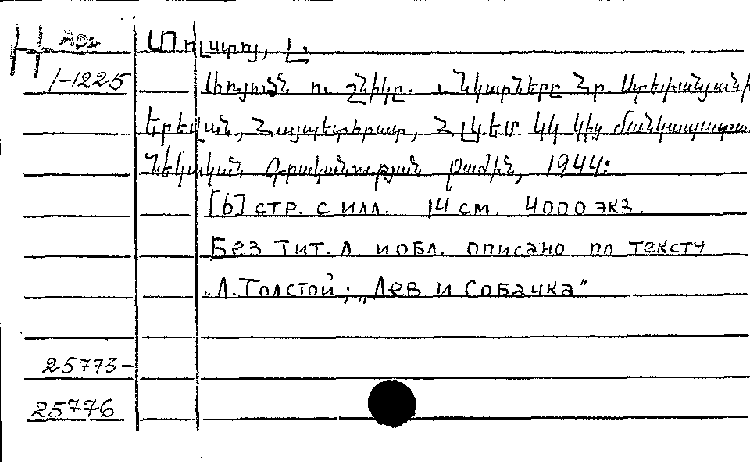 Н Арм
1-1225
Տոլստոյ, Լ.
Առյուծն ու շնիկը. Նկարները Հր. Ստեփանյանի
Երեվան, Հայպետհրատ, ՀԼԿԵՄ ԿԿ կից մանկապատա
նեկական գրականության բաժին, 1944:
[6] стр. с илл. 14 см. 4000 экз.
Без тит. л и обл. описано по тексту
Л. Толстой; „Лев и Собачка"
25773-
25776